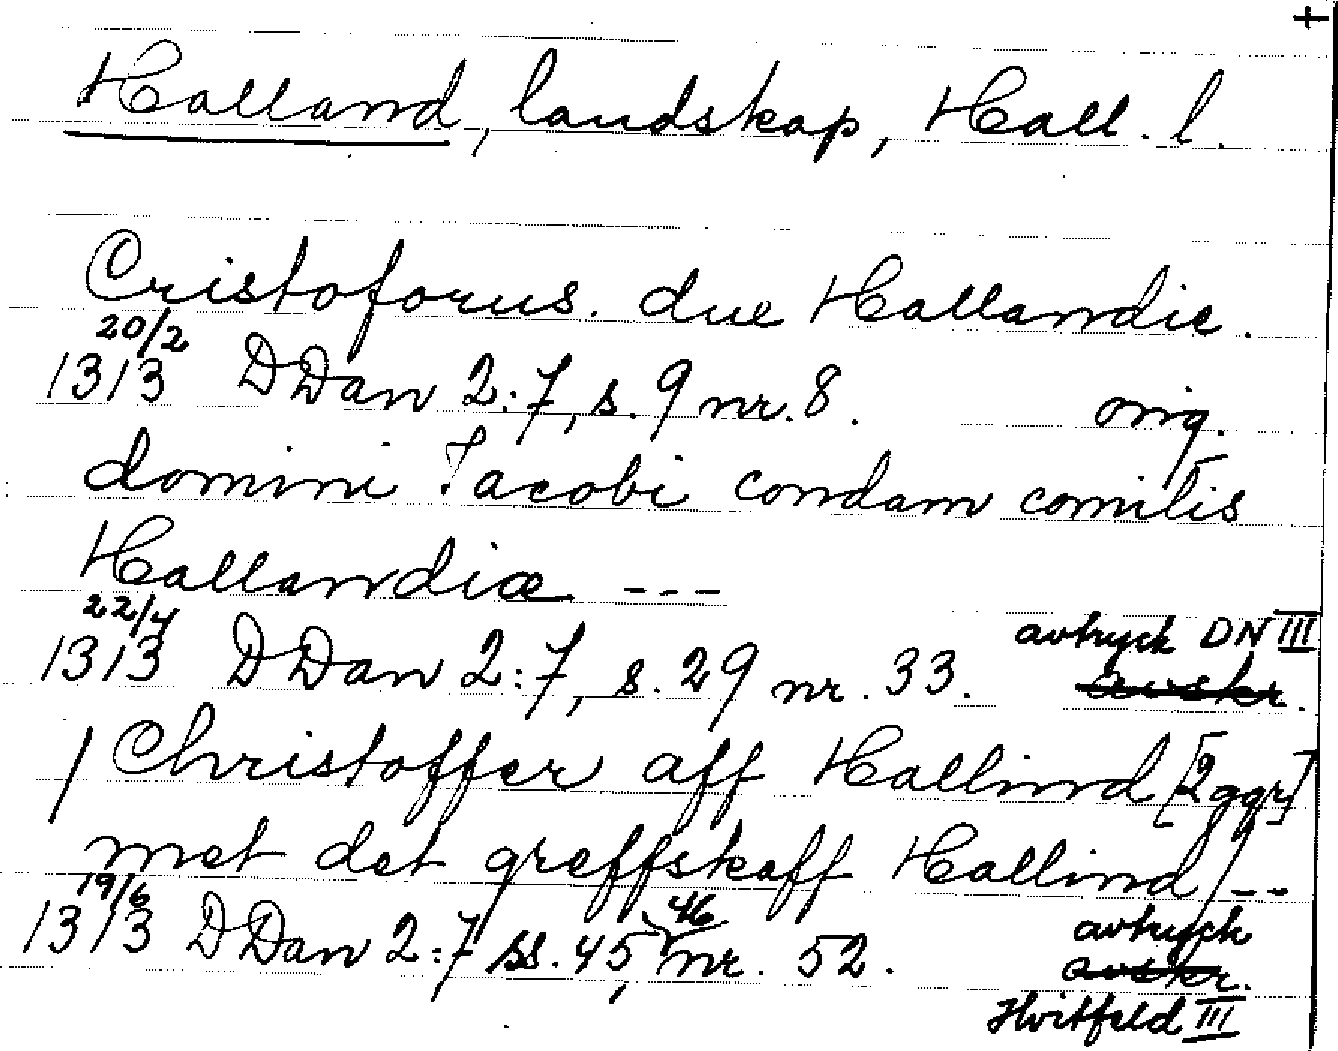 +
Halland, landskap, Hall. l.
Cristoforus. dux Hallandie.
20/2
1313 DDan 2:7, s. 9 nr. 8. orig.
domini Jacobi condam comitis
Hallandiæ ---
22/4
1313 DDan 2:7, s. 29 nr. 33. avtryck DN III
avskr.
/ Christoffer aff Hallind [2 ggr]
met det greffskaff Hallind / --
19/6
1313 DDan 2:7 ss. 45, 46 nr. 52. avtryck
avskr.
Hvitfeld III